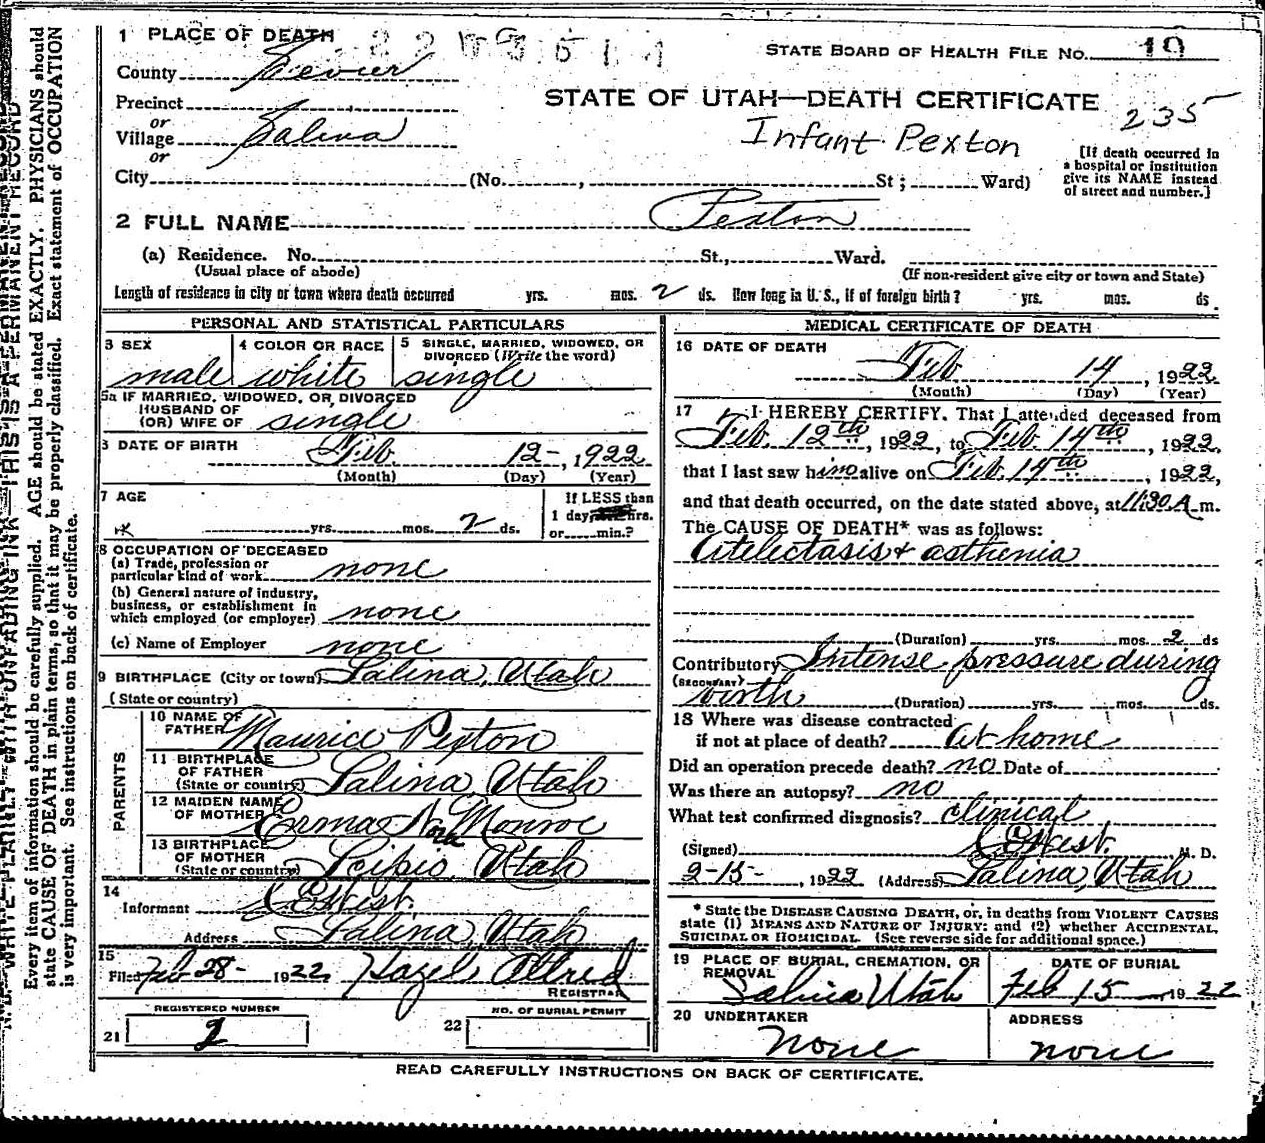 1 PLACE OF DEATH
STATE BOARD OF HEALTH FILE NO. 19
County Sevier
STATE OF UTAH—DEATH CERTIFICATE
235
Precinct
or
Village Salina
or
Infant Pexton
[If death occurred in a hospital or institution give its NAME instead of street and number.]
City (No. , St ; Ward)
2 FULL NAME Pexton
(a) Residence. No. St., Ward.
(Usual place of abode) (If non-resident give city or town and State)
Length of residence in city or town where death occurred yrs. mos. 2 ds. How long in U. S., if of foreign birth? yrs. mos. ds.
PERSONAL AND STATISTICAL PARTICULARS
3 SEX male
4 COLOR OR RACE white
5 SINGLE, MARRIED, WIDOWED, OR DIVORCED (Write the word) single
5a IF MARRIED, WIDOWED, OR DIVORCED
HUSBAND OF
(OR) WIFE OF single
6 DATE OF BIRTH Feb. 12-, 1922
(Month) (Day) (Year)
7 AGE yrs. mos. 2 ds.
If LESS than
1 day hrs.
or min.?
8 OCCUPATION OF DECEASED
(a) Trade, profession or
particular kind of work none
(b) General nature of industry,
business, or establishment in
which employed (or employer) none
(c) Name of Employer none
9 BIRTHPLACE (City or town) Salina, Utah
(State or country)
PARENTS
10 NAME OF FATHER Maurice Pexton
11 BIRTHPLACE OF FATHER (State or country) Salina, Utah
12 MAIDEN NAME OF MOTHER Erma Nora Monroe
13 BIRTHPLACE OF MOTHER (State or country) Scipio, Utah
14
Informant C E West.
Address Salina, Utah
15
Filed Feb 28- 1922 Hazel Allred
REGISTRAR
REGISTERED NUMBER
21 2
NO. OF BURIAL PERMIT
22
MEDICAL CERTIFICATE OF DEATH
16 DATE OF DEATH
Feb 14, 1922
(Month) (Day) (Year)
17 I HEREBY CERTIFY, That I attended deceased from
Feb. 12th, 1922, to Feb. 14th, 1922,
that I last saw him alive on Feb. 14th, 1922,
and that death occurred, on the date stated above, at 11:30 A. m.
The CAUSE OF DEATH* was as follows:
Atelectasis + asthenia
(Duration) yrs. mos. 2 ds
Contributory Intense pressure during
(SECONDARY) birth (Duration) yrs. mos. ds.
18 Where was disease contracted
if not at place of death? At home
Did an operation precede death? no Date of
Was there an autopsy? no
What test confirmed diagnosis? clinical
(Signed) C E West. M. D.
2-15-, 1922 (Address) Salina, Utah
* State the DISEASE CAUSING DEATH, or, in deaths from VIOLENT CAUSES
state (1) MEANS AND NATURE OF INJURY; and (2) whether ACCIDENTAL,
SUICIDAL OR HOMICIDAL. (See reverse side for additional space.)
19 PLACE OF BURIAL, CREMATION, OR REMOVAL
Salina Utah
DATE OF BURIAL
Feb 15 1922
20 UNDERTAKER
none
ADDRESS
none
READ CAREFULLY INSTRUCTIONS ON BACK OF CERTIFICATE.
Every item of information should be carefully supplied. AGE should be stated EXACTLY. PHYSICIANS should
state CAUSE OF DEATH in plain terms, so that it may be properly classified. Exact statement of OCCUPATION
is very important. See instructions on back of certificate.